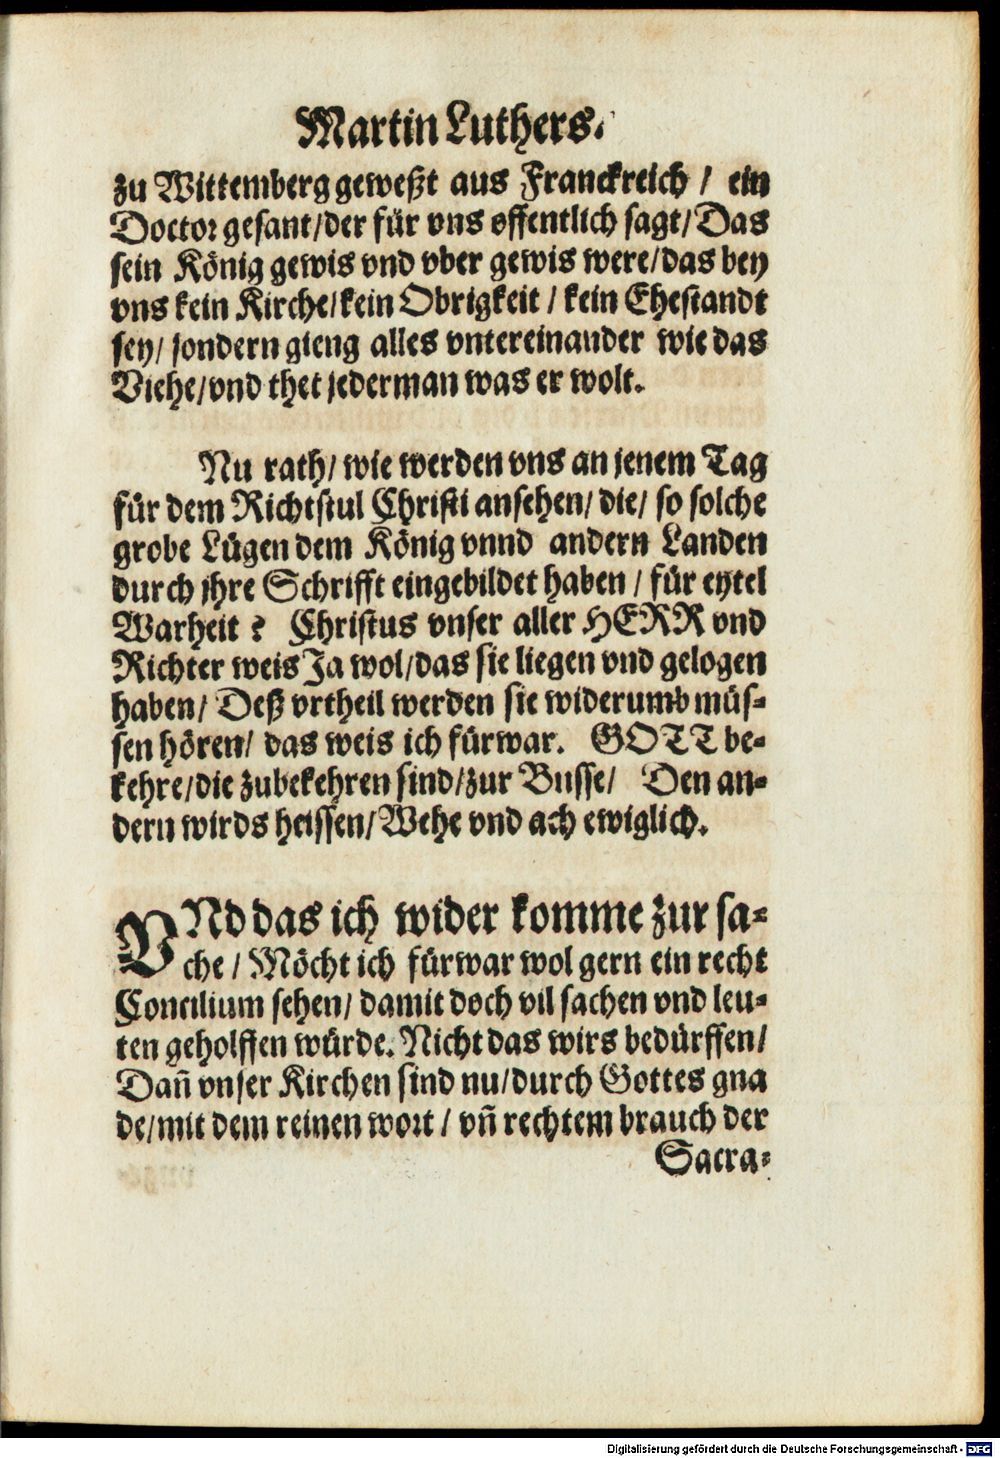 Martin Luthers.
zu Wittemberg geweßt aus Franckreich / ein
Doctor gesant/der für vns offentlich sagt/Das
sein König gewis vnd vber gewis were/das bey
vns kein Kirche/kein Obrigkeit / kein Ehestandt
sey/ sondern gieng alles vntereinander wie das
Viehe/vnd thet jederman was er wolt.
Nu rath/ wie werden vns an jenem Tag
für dem Richtstul Christi ansehen/ die/ so solche
grobe Lügen dem König vnnd andern Landen
durch jhre Schrifft eingebildet haben / für eytel
Warheit ? Christus vnser aller HERR vnd
Richter weis Ja wol/das sie liegen vnd gelogen
haben/ Deß vrtheil werden sie widerumb müs-
sen hören/ das weis ich fürwar. GOTT be-
kehre/die zubekehren sind/zur Busse/ Den an-
dern wirds heissen/Wehe vnd ach ewiglich.
VNd das ich wider komme zur sa-
che / Möcht ich fürwar wol gern ein recht
Concilium sehen/ damit doch vil sachen vnd leu-
ten geholffen würde. Nicht das wirs bedürffen/
Dañ vnser Kirchen sind nu/durch Gottes gna
de/mit dem reinen wort / vñ rechtem brauch der
Sacra-
Digitalisierung gefördert durch die Deutsche Forschungsgemeinschaft - DFG